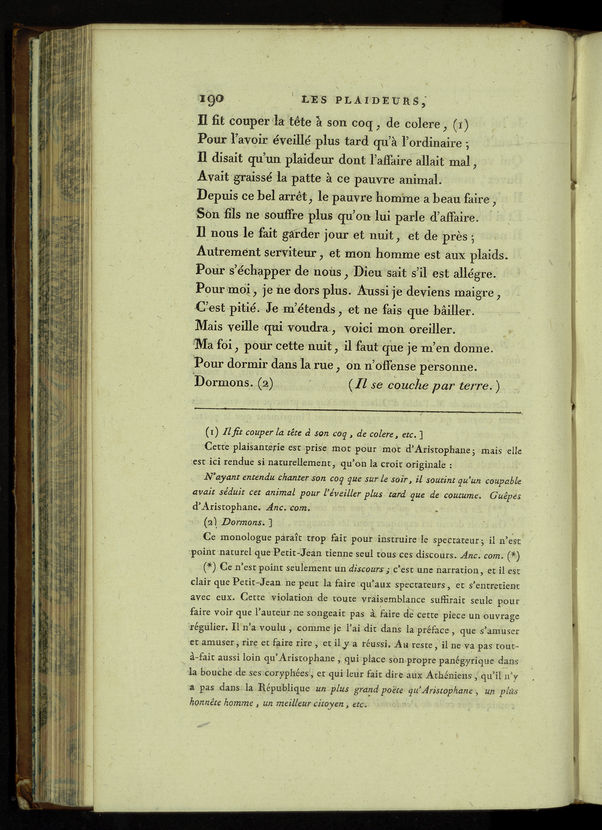 190 LES PLAIDEURS,
Il fit couper la tête à son coq, de colere, (1)
Pour l'avoir éveillé plus tard qu'à l'ordinaire ;
Il disait qu'un plaideur dont l'affaire allait mal,
Avait graissé la patte à ce pauvre animal.
Depuis ce bel arrêt, le pauvre homme a beau faire,
Son fils ne souffre plus qu'on lui parle d'affaire.
Il nous le fait garder jour et nuit, et de près ;
Autrement serviteur, et mon homme est aux plaids.
Pour s'échapper de nous, Dieu sait s'il est allégre.
Pour moi, je ne dors plus. Aussi je deviens maigre,
C'est pitié. Je m'étends, et ne fais que bâiller.
Mais veille qui voudra, voici mon oreiller.
Ma foi, pour cette nuit, il faut que je m'en donne.
Pour dormir dans la rue, on n'offense personne.
Dormons. (2) (Il se couche par terre.)
(1) Il fit couper la tête à son coq, de colere, etc. ]
Cette plaisanterie est prise mot pour mot d'Aristophane; mais elle
est ici rendue si naturellement, qu'on la croit originale :
N'ayant entendu chanter son coq que sur le soir, il soutint qu'un coupable
avait séduit cet animal pour l'éveiller plus tard que de coutume. Guêpes
d'Aristophane. Anc. com.
(2) Dormons. ]
Ce monologue paraît trop fait pour instruire le spectateur; il n'est
point naturel que Petit-Jean tienne seul tous ces discours. Anc. com. (*)
(*) Ce n'est point seulement un discours ; c'est une narration, et il est
clair que Petit-Jean ne peut la faire qu'aux spectateurs, et s'entretient
avec eux. Cette violation de toute vraisemblance suffirait seule pour
faire voir que l'auteur ne songeait pas à faire de cette piece un ouvrage
régulier. Il n'a voulu, comme je l'ai dit dans la préface, que s'amuser
et amuser, rire et faire rire, et il y a réussi. Au reste, il ne va pas tout-
à-fait aussi loin qu'Aristophane, qui place son propre panégyrique dans
la bouche de ses coryphées, et qui leur fait dire aux Athéniens, qu'il n'y
a pas dans la République un plus grand poëte qu'Aristophane, un plus
honnête homme, un meilleur citoyen, etc.